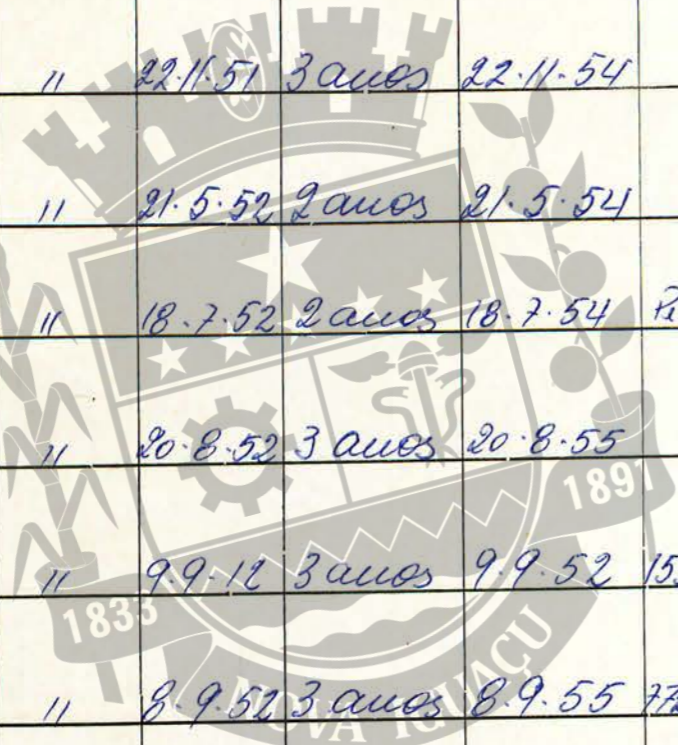 " 22.11.51 3 anos 22.11.54
" 21.5.52 2 anos 21.5.54
" 18.7.52 2 anos 18.7.54
" 20.8.52 3 anos 20.8.55
" 9.9.12 3 anos 9.9.52 15
" 8.9.52 3 anos 8.9.55 77
1833 1891
NOVA IGUAÇU